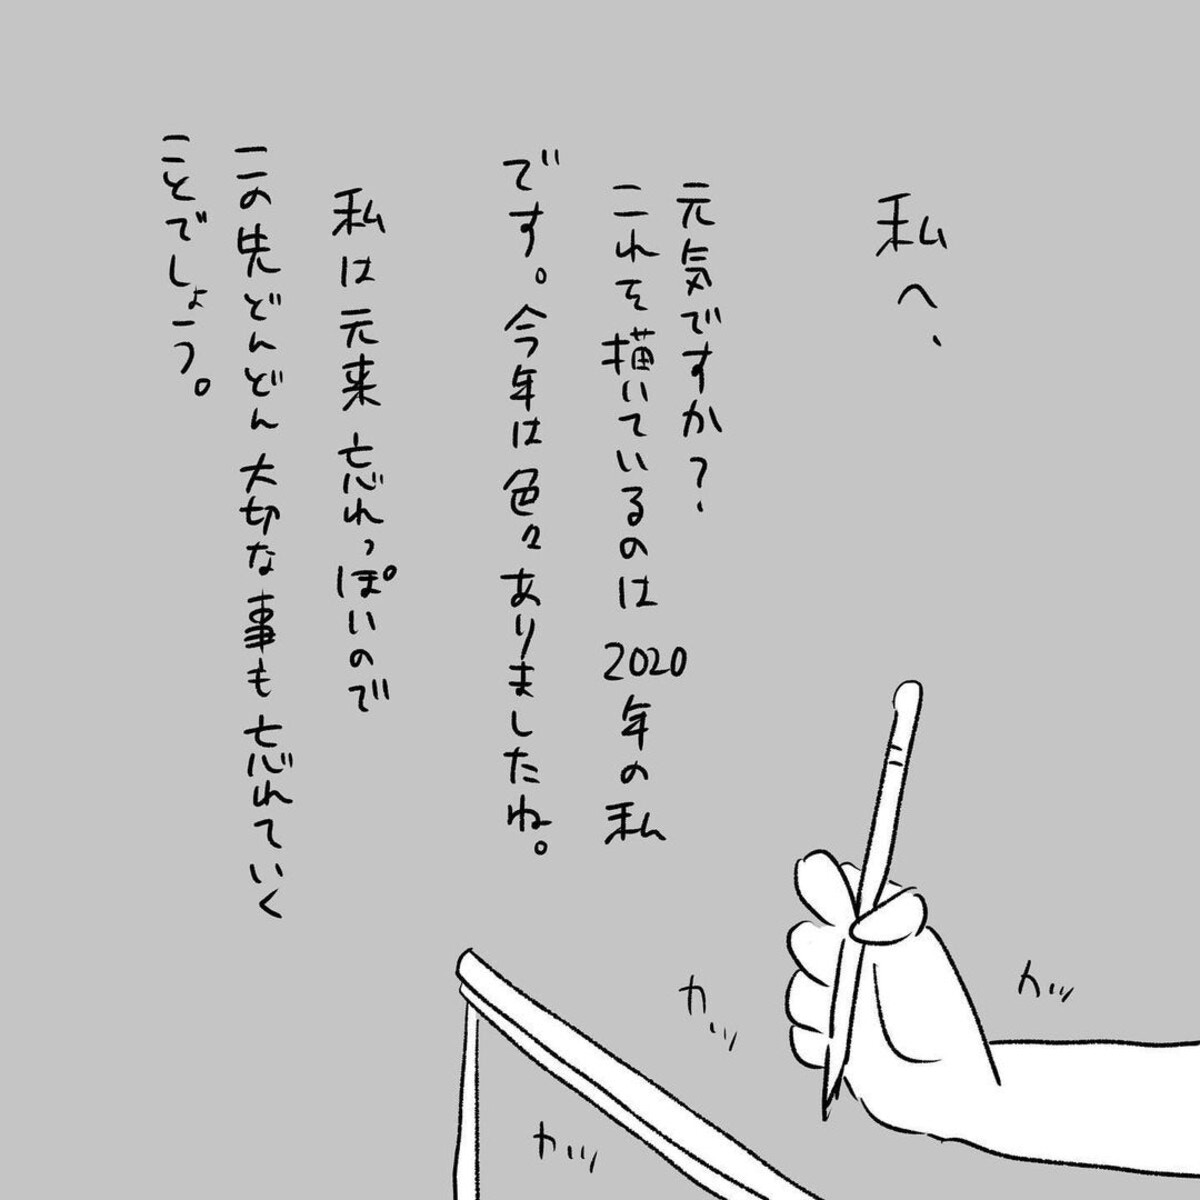 私へ、
元気ですか？
これを描いているのは2020年の私
です。今年は色々ありましたね。
私は元来忘れっぽいので
この先どんどん大切な事も忘れていく
ことでしょう。
カッ
カッ
カッ